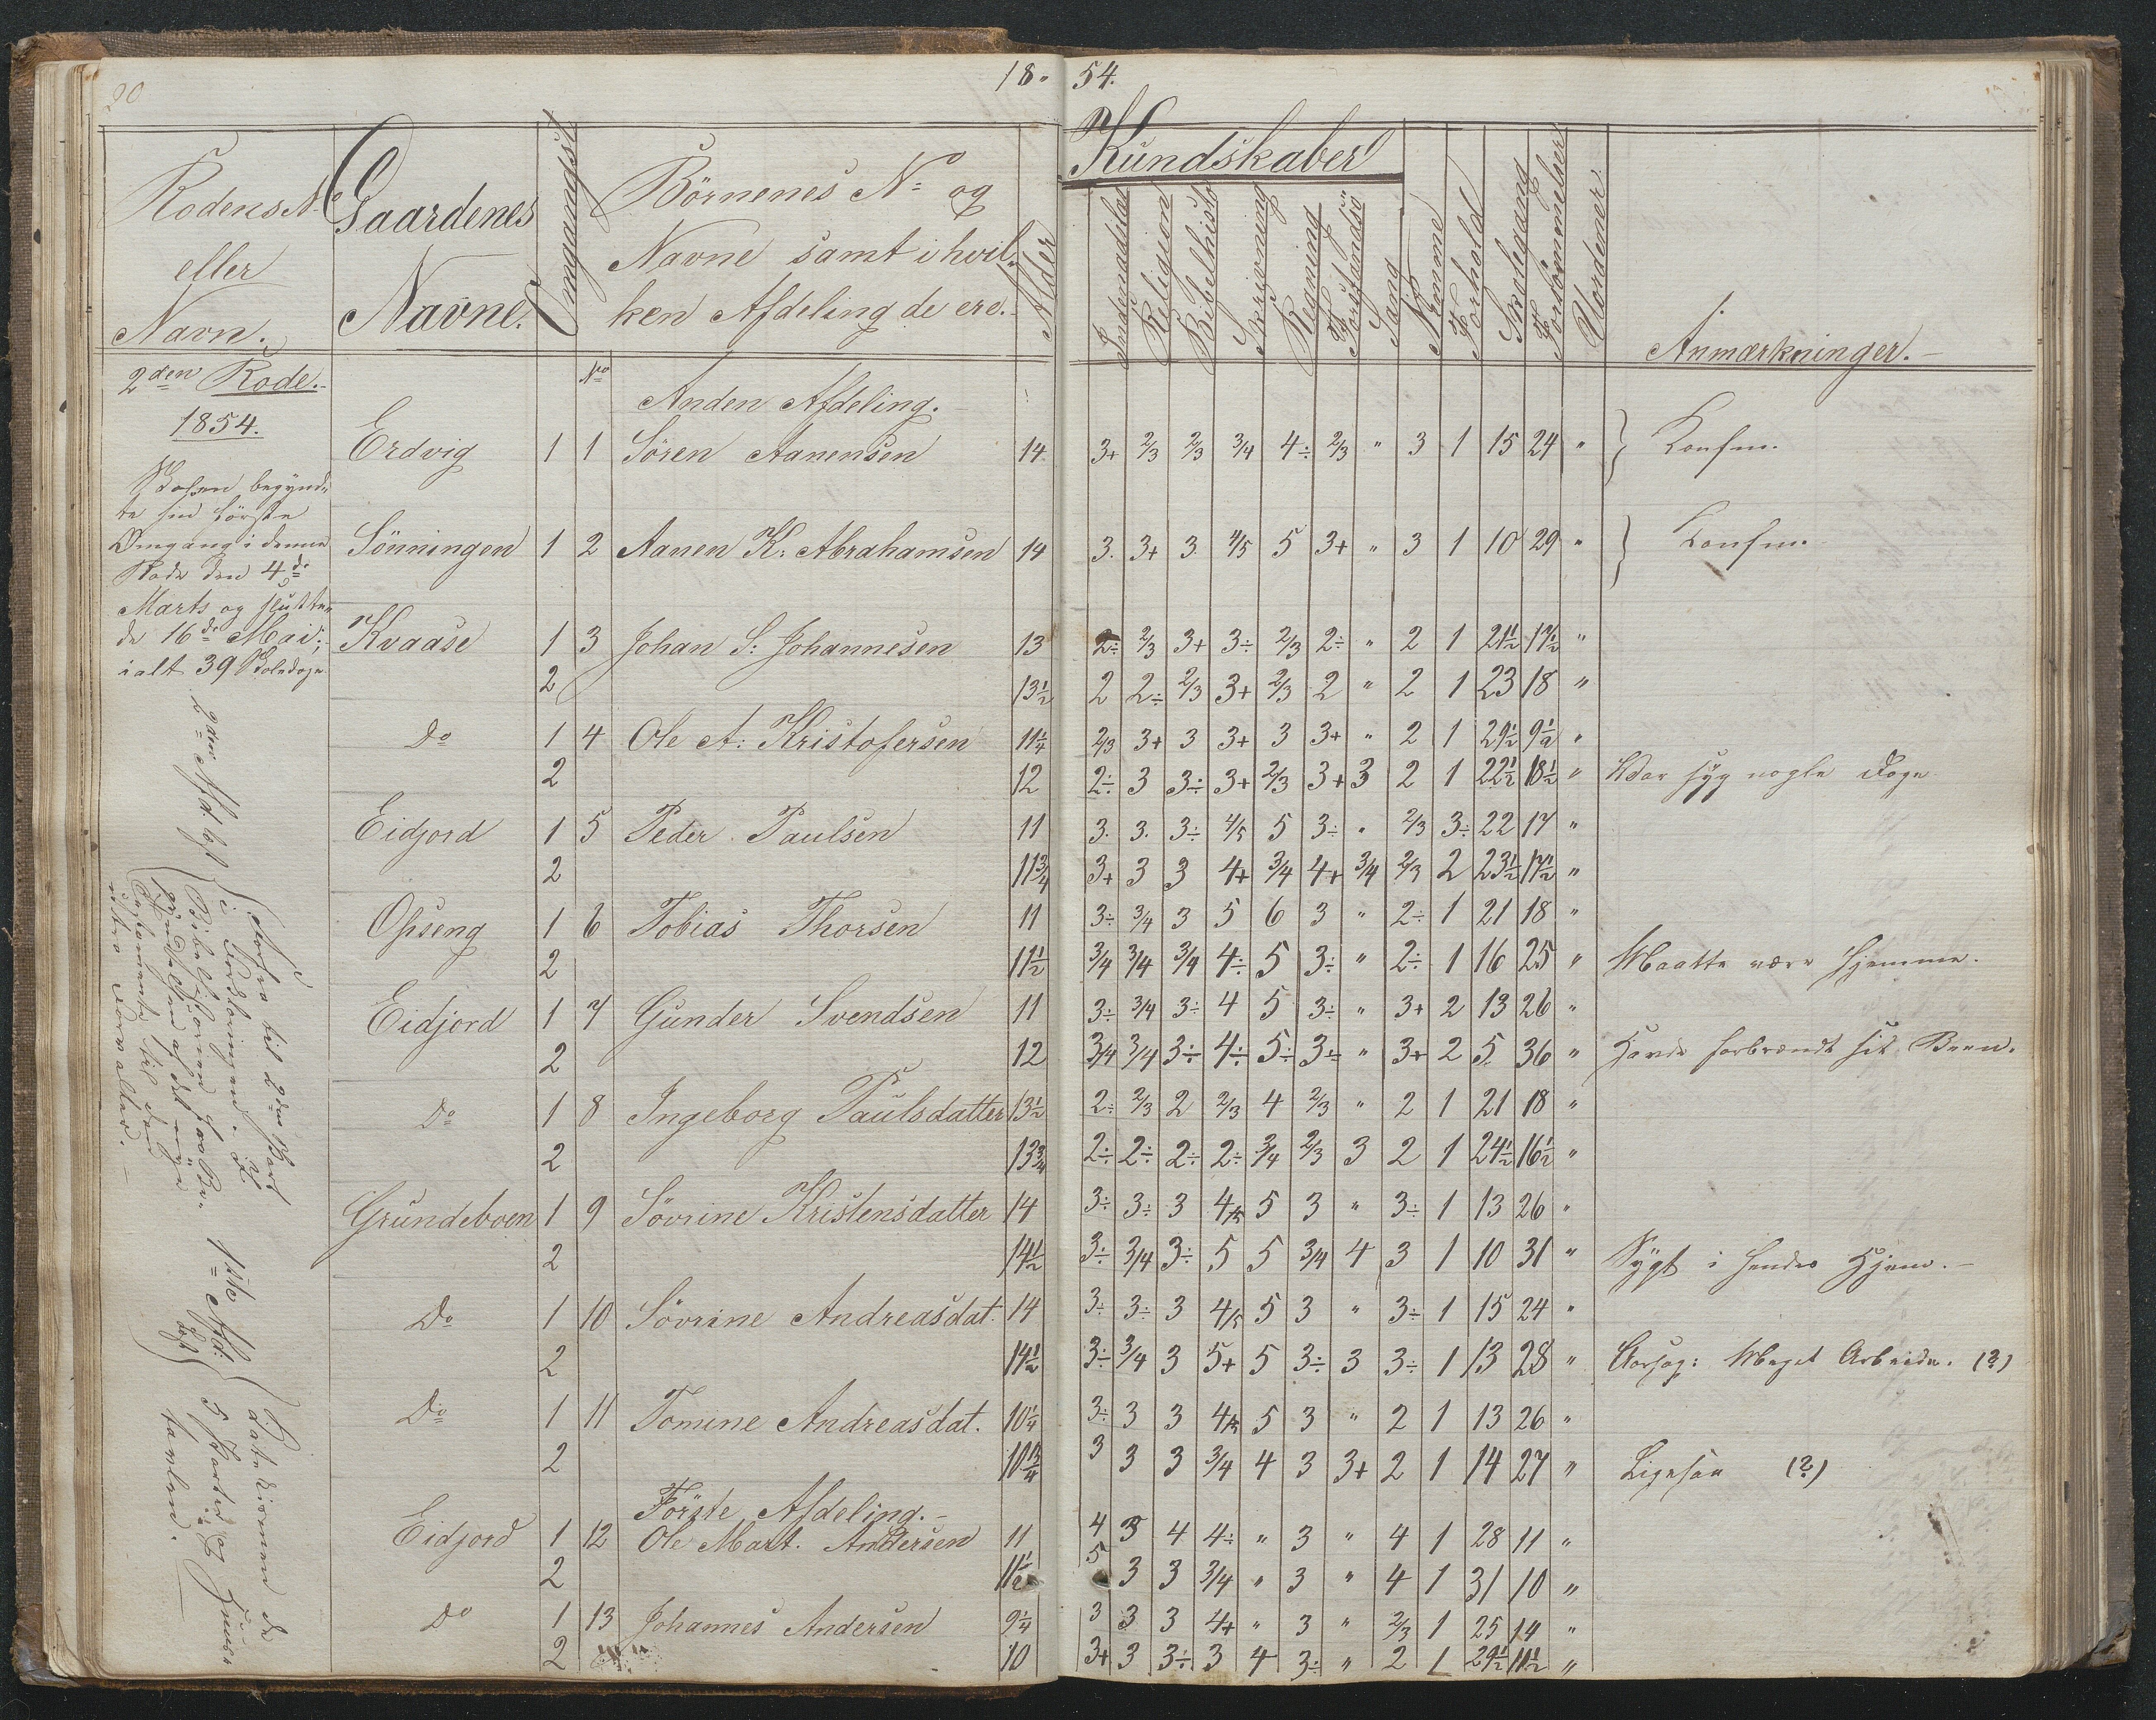 20
18 " 54.
Rodens No
eller
Navn.
Gaardenes
Navne.
Omgangst
Börnenes No og
Navne samt i hvil-
ken Afdeling de ere.
Alder
Kundskaber
Indenadslæ
Religion
Bibelhisto
Skrivning
Regning
Forstandsö
Sang
Nemme
Forhold
Skolegang
Forsömmelser
Uordener
Anmærkninger.
2den Rode.
1854.
Skolen begynd-
te sin förste
Omgang i denne
Rode den 4de
Marts og slutte-
de 16de Mai;
ialt 39 Skoledage.
No
Anden Afdeling.
Erdvig 1 1 Sören Aanensen 14 3+ 2/3 2/3 3/4 4÷ 2/3 " 3 1 15 24 " } Konfm.
Sönningen 1 2 Aanen K: Abrahamsen 14 3. 3+ 3 4/5 5 3+ " 3 1 10 29 " } Konfm.
Kvaase 1 3 Johan S: Johannesen 13 2÷ 2/3 3+ 3÷ 2/3 2÷ " 2 1 21½ 17½ "
2 13½ 2 2÷ 2/3 3+ 2/3 2 " 2 1 23 18 "
Do 1 4 Ole A: Kristofersen 11¼ 2/3 3+ 3 3+ 3 3+ " 2 1 29½ 9½ "
2 12 2÷ 3 3÷ 3+ 2/3 3+ 3 2 1 22½ 18½ " Var syg nogle Dage
Eidjord 1 5 Peder Paulsen 11 3. 3. 3÷ 4/5 5 3÷ " 2/3 3÷ 22 17 "
2 11¾ 3+ 3 3 4+ 3/4 4+ 3/4 2/3 2 23½ 17½ "
Opseng 1 6 Tobias Thorsen 11 3÷ 3/4 3 5 6 3 " 2÷ 1 21 18 "
2 11½ 3/4 3/4 3/4 4÷ 5 3÷ " 2÷ 1 16 25 " Maatte være hjemme.
Eidjord 1 7 Gunder Svendsen 11 3÷ 3/4 3÷ 4 5 3÷ " 3+ 2 13 26 "
2 12 3/4 3/4 3÷ 4÷ 5÷ 3÷ " 3+ 2 5 36 " Havde forbrændt sit Been.
Do 1 8 Ingeborg Paulsdatter 13½ 2÷ 2/3 2 2/3 4 2/3 " 2 1 21 18 "
2 13¾ 2÷ 2÷ 2÷ 2÷ 3/4 2/3 3 2 1 24½ 16½ "
Grundeboen 1 9 Sövrine Kristensdatter 14 3÷ 3÷ 3 4/5 5 3 " 3÷ 1 13 26 "
2 14½ 3÷ 3/4 3÷ 5 5 3/4 4 3 1 10 31 " Sygt i hendes Hjem.
Do 1 10 Sövrine Andreasdat. 14 3÷ 3÷ 3 4/5 5 3 " 3÷ 1 15 24 "
2 14½ 3÷ 3/4 3 5+ 5 3÷ 3 3÷ 1 13 28 " Aarsag: Meget Arbeide. (?)
Do 1 11 Tomine Andreasdat. 10¼ 3÷ 3 3 4/5 5 3 " 2 1 13 26 "
2 10¾ 3 3 3 3/4 4 3 3+ 2 1 14 27 " Ligesaa (?)
Förste Afdeling.
Eidjord 1 12 Ole Mart. Andersen 11 4 3 4 4÷ " 3 " 4 1 28 11 "
2 11½ 5 3 3 3/4 " 3 " 4 1 31 10 "
Do 1 13 Johannes Andersen 9¼ 3 3 3 4+ " 3 " 2/3 1 25 14 "
2 10 3+ 3 3÷ 3 4 3÷ " 2 1 29½ 11½ "
2den Afd.
til 2den Part
i Forklaringen.
Bibelhistorien
1ste Afd:
Katekismen de
3 Parter og
tavlen.